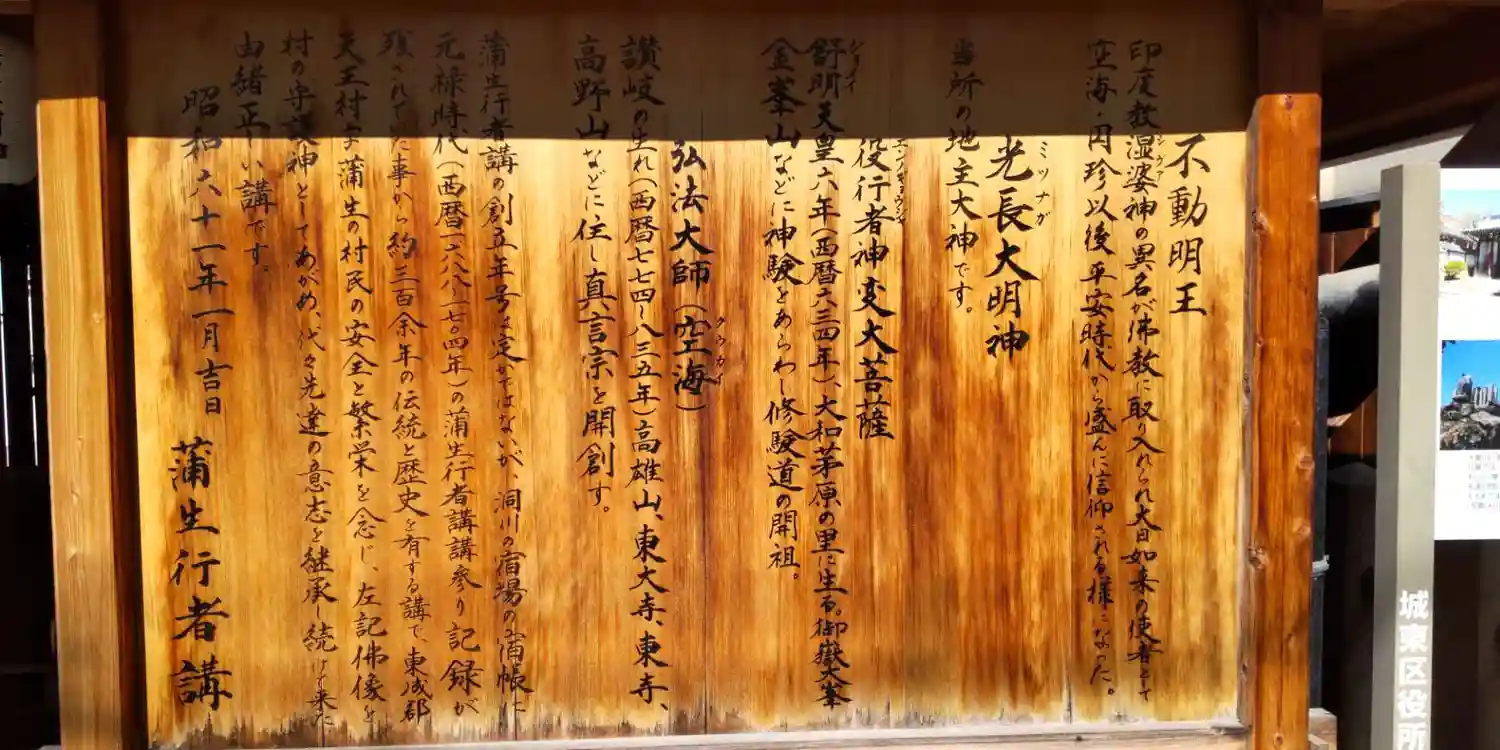 不動明王
印度教湿婆神の異名が佛教に取り入れられ大日如来の使者として
シヴァ
空海・円珍以後平安時代から盛んに信仰される様になった。
光長大明神
ミツナガ
当所の地主大神です。
役行者神変大菩薩
舒明天皇六年(西暦六三四年)、大和茅原の里に生る。御嶽大峯
ジョメイ
金峯山などに神験をあらわし修験道の開祖。
弘法大師(空海)
クウカイ
讃岐の生れ(西暦七七四〜八三五年)高雄山、東大寺、東寺、
高野山などに住し真言宗を開創す。
蒲生行者講の創立年号は定かではないが、洞川の宿場の宿帳に
元禄時代(西暦一六八八〜一七〇四年)の蒲生行者講講参り記録が
残されてた事から約三百余年の伝統と歴史を有する講で、東成郡
天王村字蒲生の村民の安全と繁栄を念じ、左記佛像を
村の守護神としてあがめ、代々先達の意志を継承し続けて来た
由緒正しい講です。
昭和六十一年一月吉日
蒲生行者講
城東区役所